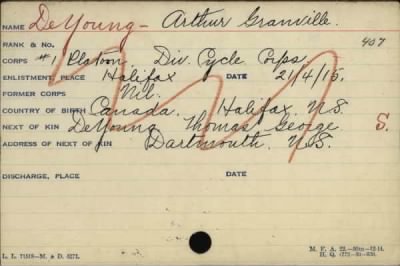 NAME DeYoung - Arthur Granville.
RANK & NO. 407
CORPS #1 Platoon, Div. Cycle Corps.
ENLISTMENT, PLACE Halifax DATE 21/4/15.
FORMER CORPS Nil.
COUNTRY OF BIRTH Canada. Halifax, N.S.
NEXT OF KIN DeYoung Thomas George S.
ADDRESS OF NEXT OF KIN Dartmouth. N.S.
DISCHARGE, PLACE DATE
L. L. M. & D. 6271. M. F. A. 22.
H. Q.